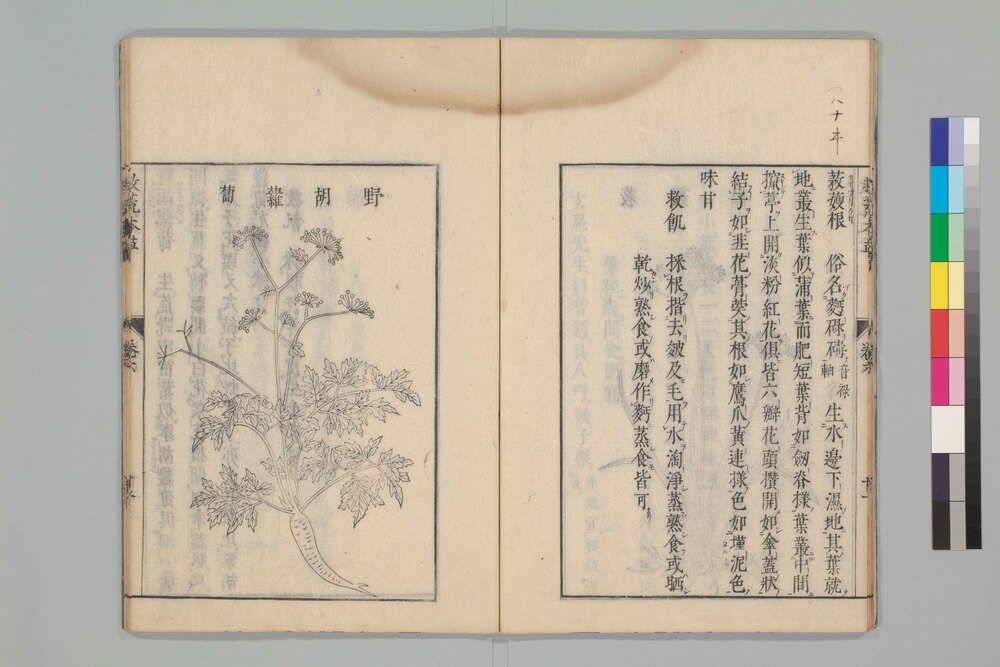 菼蒾根　俗名麪碌碡音祿軸　生水邊下濕地其葉就
地叢生葉似蒲葉而肥短葉背如劔脊樣葉叢中間
攛葶上開淡粉紅花俱皆六瓣花頭攢開如傘蓋狀
結子如韭花蓇葖其根如鷹爪黃連樣色如墐泥色
味甘
救飢　採根揩去皴及毛用水淘淨蒸熟食或晒
乾炒熟食或磨作麪蒸食皆可
野胡蘿蔔